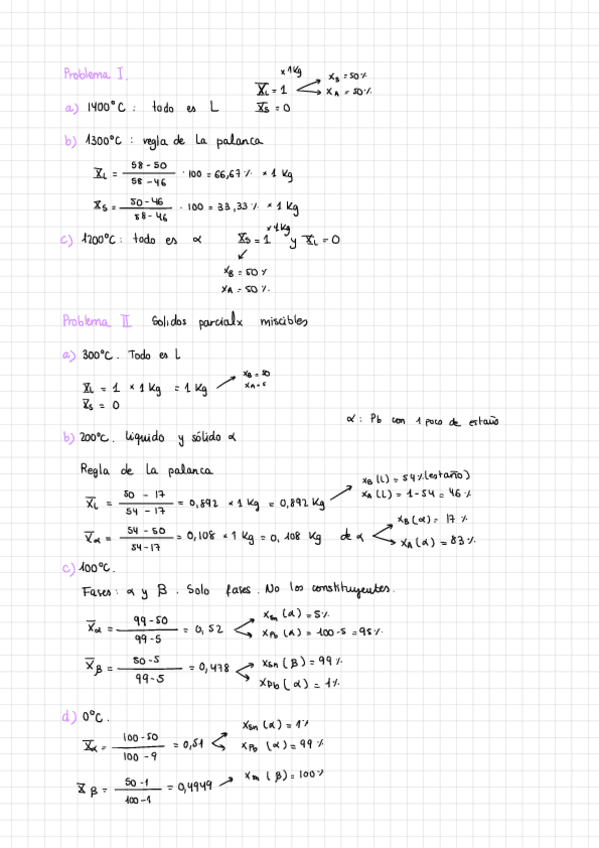 Problema I.
x 1Kg
X̄L = 1 → xB = 50%
→ xA = 50%
a) 1400°C : todo es L X̄S = 0
b) 1300°C : regla de la palanca
X̄L = 58 - 50 / 58 - 46 · 100 = 66,67% * 1 Kg
X̄S = 50 - 46 / 58 - 46 · 100 = 33,33% * 1 Kg
x 1Kg
c) 1200°C : todo es α X̄S = 1 y X̄L = 0
xB = 50%
xA = 50%.
Problema II Solidos parcialx miscibles
a) 300°C. Todo es L
X̄L = 1 * 1 Kg = 1 Kg → xB = 50
X̄S = 0
α : Pb con 1 poco de estaño
b) 200°C. liquido y sólido α
Regla de la palanca
X̄L = 50 - 17 / 54 - 17 = 0,892 * 1 Kg = 0,892 Kg → xB (L) = 54% (estaño)
xA (L) = 1 - 54 = 46%
X̄α = 54 - 50 / 54 - 17 = 0,108 * 1 Kg = 0,108 Kg de α → xB (α) = 17%
→ xA (α) = 83%
c) 100°C.
Fases : α y β. Solo fases. No los constituyentes.
X̄α = 99 - 50 / 99 - 5 = 0,52 → xSn (α) = 5%
→ xPb (α) = 100 - 5 = 95%
X̄β = 50 - 5 / 99 - 5 = 0,478 → xSn (β) = 99%
→ xPb (α) = 1%
d) 0°C.
X̄α = 100 - 50 / 100 - 9 = 0,51 → xSn (α) = 1%
→ xPb (α) = 99%
X̄β = 50 - 1 / 100 - 1 = 0,4949 → xSn (β) = 100%